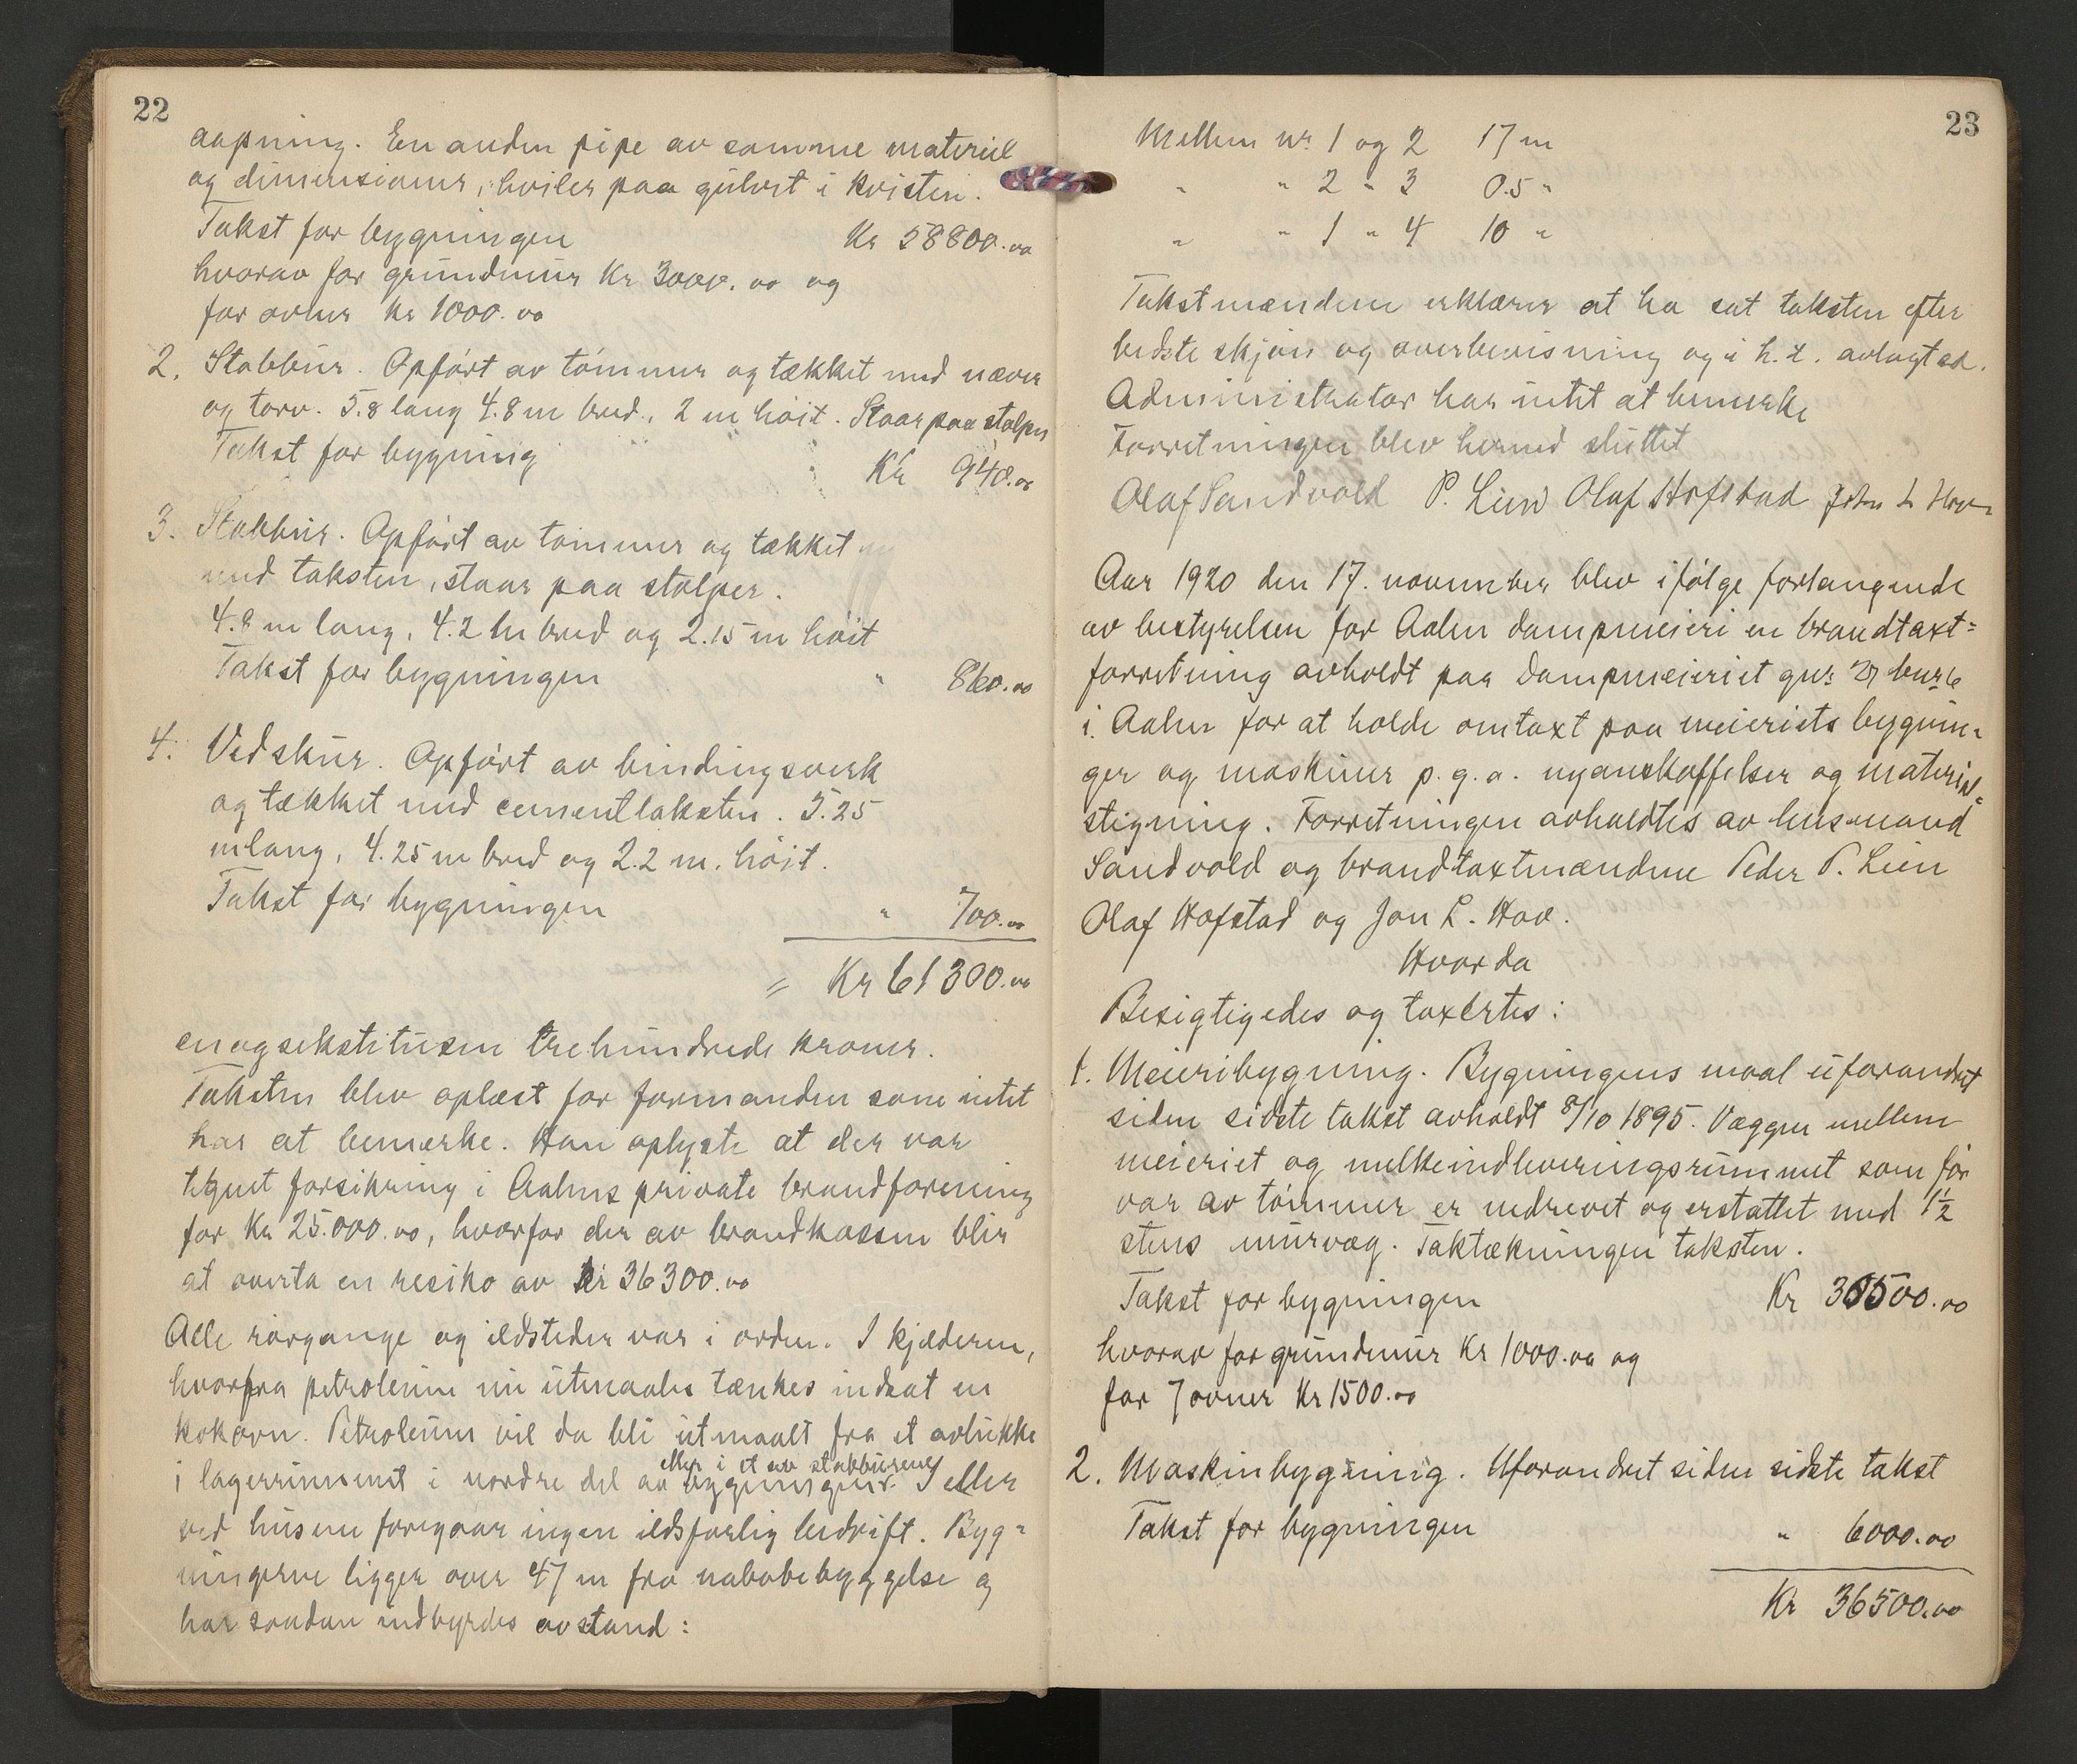 22
aapning. En anden pipe av samme materiel
og dimensioner, hviler paa gulvet i kvisten.
Takst for bygningen Kr 58800.00
hvorav for grundmur Kr 3000.00 og
for ovner Kr 1000.00
2. Stabbur. Opført av tømmer og tækket med næver
og torv. 5.8 lang 4.8 m bred, 2 m høit. Staar paa stolper
Takst for bygning Kr 940.00
3. Stabbur. Opført av tømmer og tækket
med taksten, staar paa stolper.
4.8 m lang, 4.2 m bred og 2.15 m høit
Takst for bygningen " 860.00
4. Vedskur. Opført av bindingsverk
og tækket med cementtaksten. 5.25
m lang, 4.25 m bred og 2.2 m. høit.
Takst for bygningen " 700.00
= Kr 61300.00
enogsekstitusen trehundrede kroner.
Taksten blev oplæst for formanden som intet
har at bemærke. Han oplyste at der var
tegnet forsikring i Aalens private brandforening
for Kr 25.000.00, hvorfor der av brandkassen blir
at overta en resiko av Kr 36300.00
Alle rørgange og ildsteder var i orden. I kjælderen,
hvorfra petroleum nu utmaales tænkes indsat en
kokovn. Petroleum vil da bli utmaalt fra et avlukke
eller i et av stabburene
i lagerrummet i nordre del av bygningen. I eller
ved husene foregaar ingen ildsfarlig bedrift. Byg=
ningerne ligger over 47 m fra nabobebyggelse og
har saadan indbyrdes avstand:
23
Mellem nr. 1 og 2 17 m
" " 2 " 3 0.5 "
" " 1 " 4 10 "
Takstmændene erklærer at ha sat taksten efter
bedste skjøn og overbevisning og i h.t. avlagt ed.
Administrator har intet at bemerke
Forretningen blev hermed sluttet
Olaf Sandvold P. Lien Olaf Hofstad John L Hov
Aar 1920 den 17. november blev ifølge forlangende
av bestyrelsen for Aalen dampmeieri en brandtaxt=
forretning avholdt paa Dampmeieriet gnr. 27 bnr 6
i Aalen for at holde omtaxt paa meieriets bygnin=
ger og maskiner p.g.a. nyanskaffelser og materiel=
stigning. Forretningen avholdtes av lensmand
Sandvold og brandtaxtmændene Peder P. Lien
Olaf Hofstad og Jon L. Hov.
Hvorda
Besigtigedes og taxertes:
1. Meieribygning. Bygningens maal uforandret
siden sidste takst avholdt 8/10 1895. Væggen mellem
meieriet og melkeindleveringsrummet som før
var av tømmer er nedrevet og erstattet med 1½
stens murvæg. Taktækningen taksten.
Takst for bygningen Kr 30500.00
hvorav for grundmur Kr 1000.00 og
for 7 ovner Kr 1500.00
2. Maskinbygning. Uforandret siden sidste takst
Takst for bygningen " 6000.00
Kr 36500.00